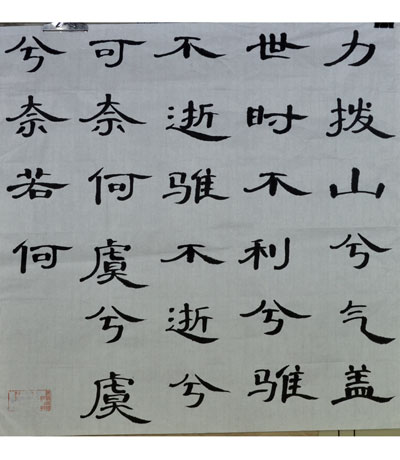 力拨山兮气盖
世时不利兮骓
不逝骓不逝兮
可奈何虞兮虞
兮奈若何